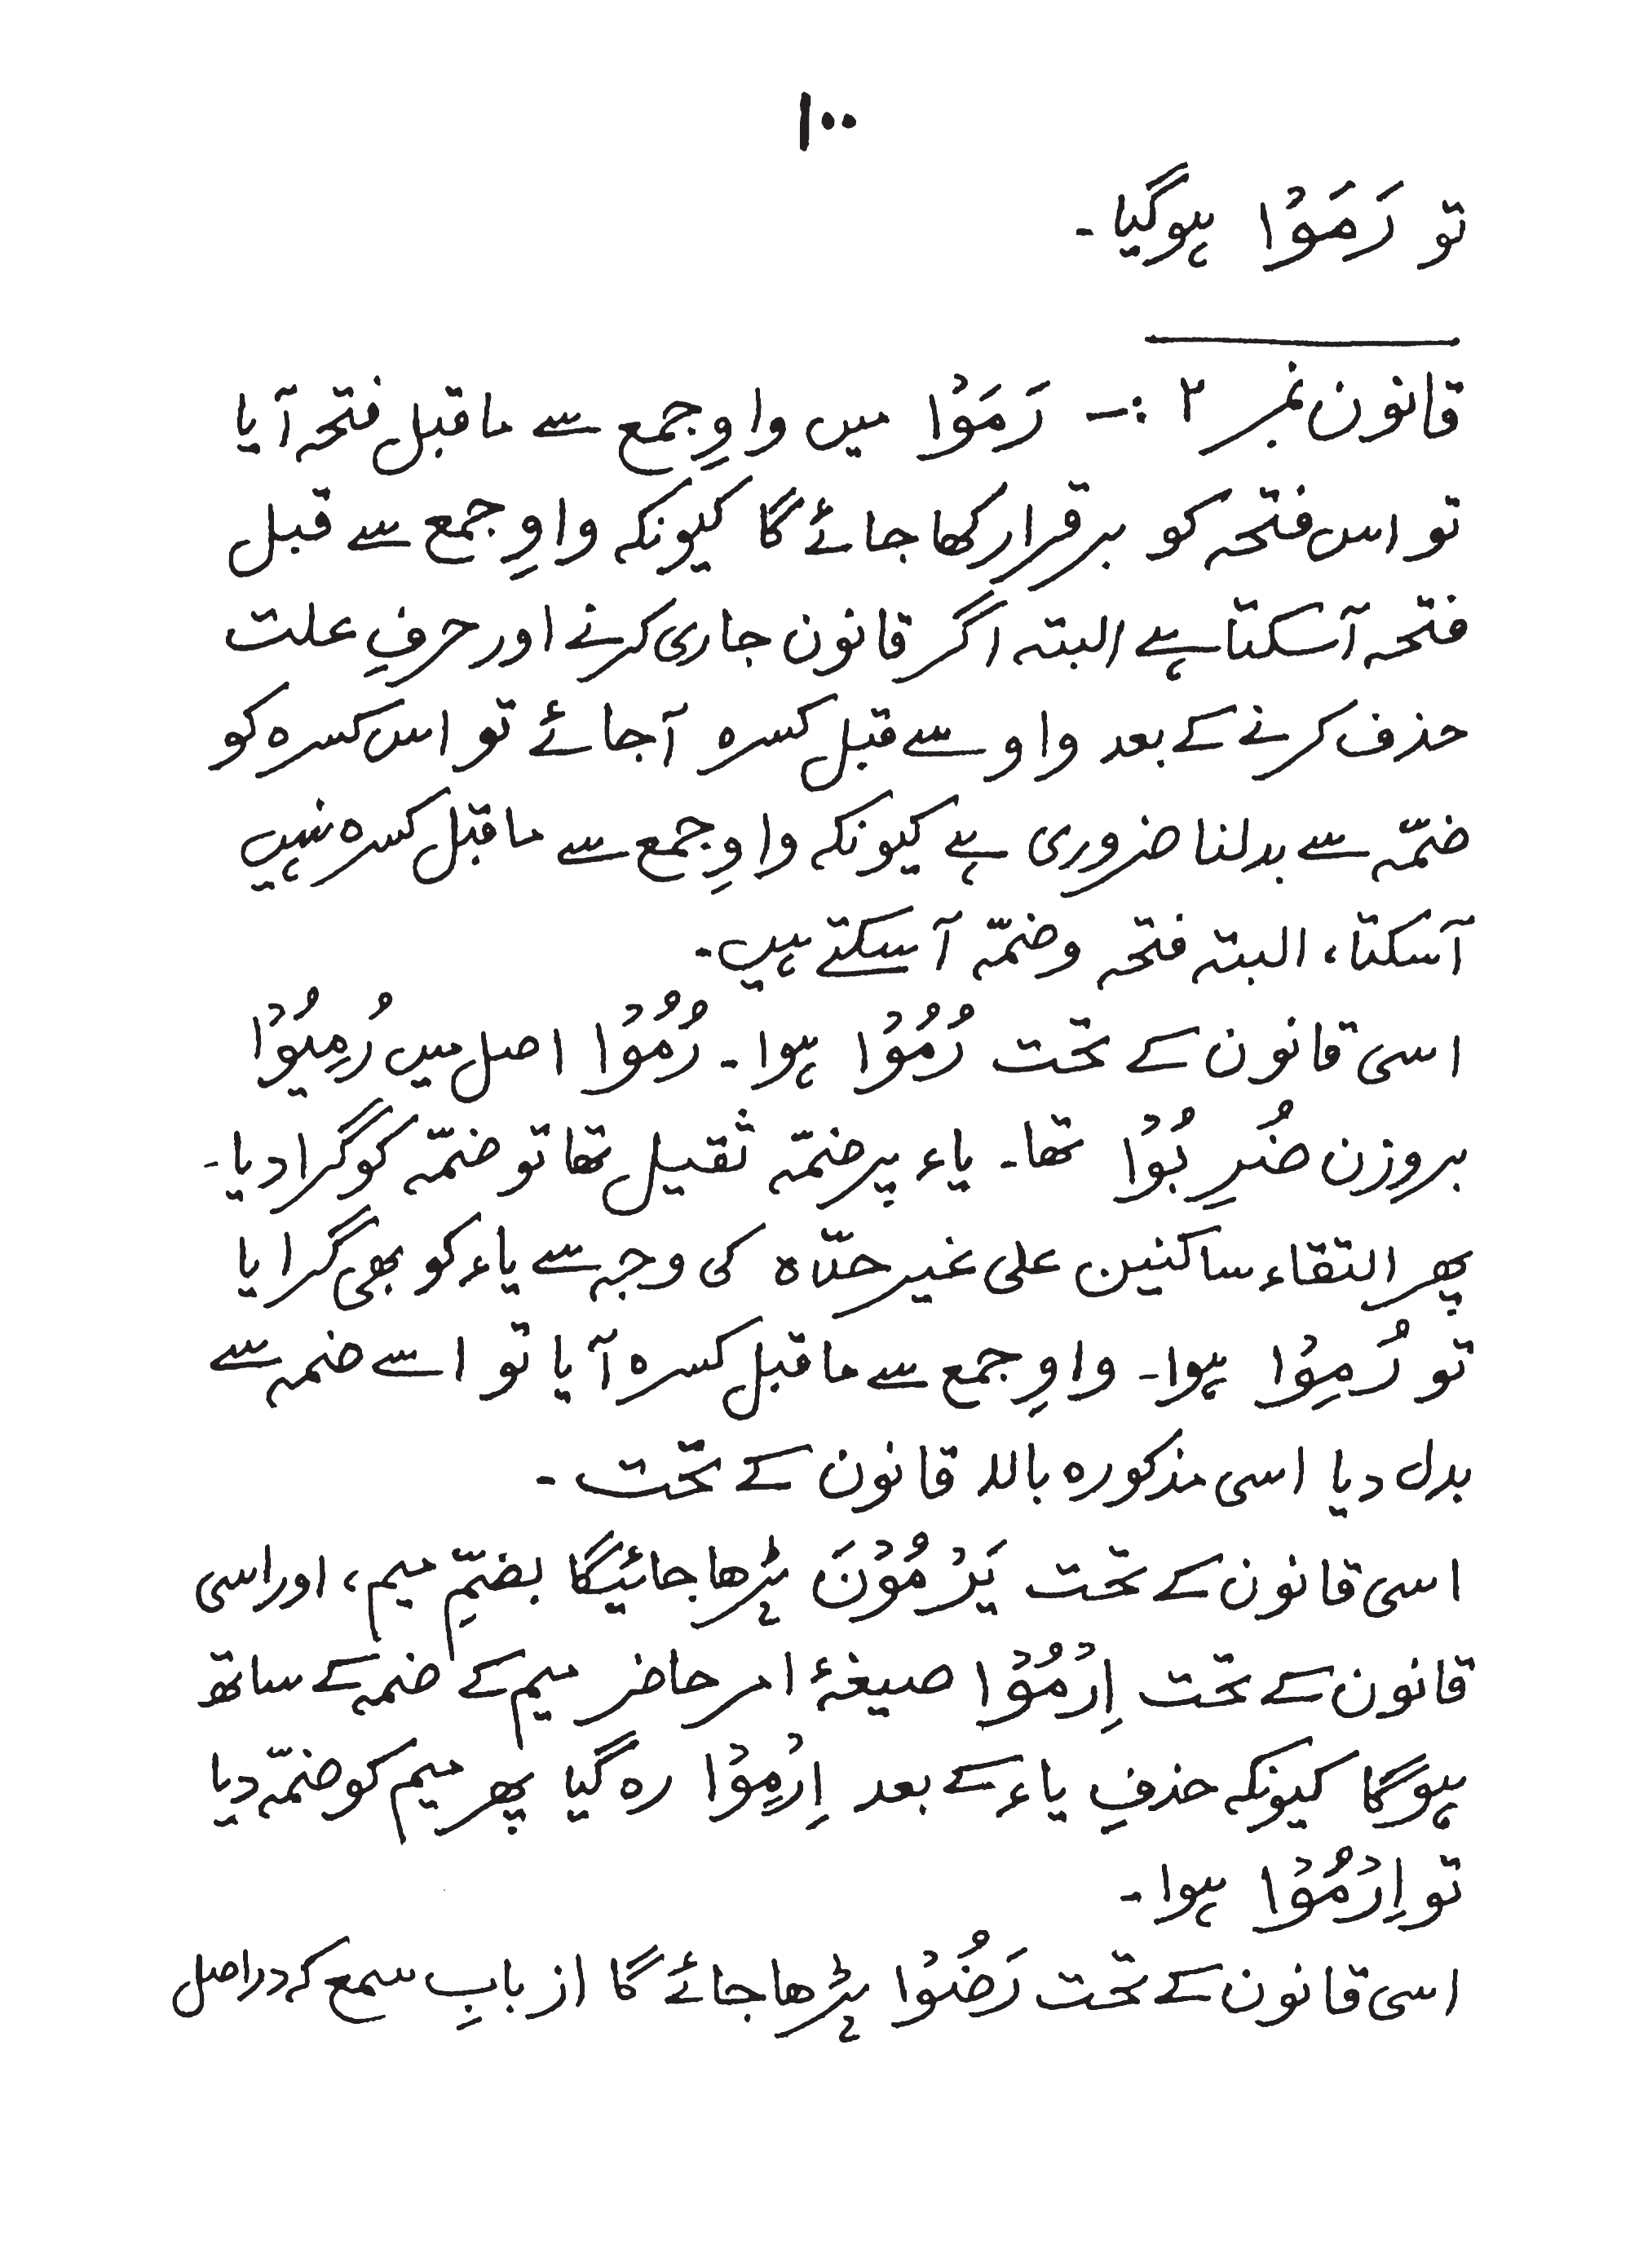 ۱۰۰
تو رَمَوْا ہوگیا۔
قانون نمبر ۲ :۔ رَمَوْا میں واوِ جمع سے ماقبل فتحہ آیا
تو اس فتحہ کو برقرار رکھا جائے گا کیونکہ واوِ جمع سے قبل
فتحہ آسکتا ہے البتہ اگر قانون جاری کرنے اور حرفِ علت
حذف کرنے کے بعد واو سے قبل کسرہ آجائے تو اس کسرہ کو
ضمّہ سے بدلنا ضروری ہے کیونکہ واوِ جمع سے ماقبل کسرہ نہیں
آسکتا، البتہ فتحہ وضمّہ آسکتے ہیں۔
اسی قانون کے تحت رُمُوْا ہوا۔ رُمُوْا اصل میں رُمِیُوْا
بروزن ضُرِبُوْا تھا۔ یاء پر ضمّہ ثقیل تھا تو ضمّہ کو گرا دیا۔
پھر التقاء ساکنین علی غیر حدّہ کی وجہ سے یاء کو بھی گرایا
تو رُمِوْا ہوا۔ واوِ جمع سے ماقبل کسرہ آیا تو اسے ضمہ سے
بدل دیا اسی مذکورہ بالا قانون کے تحت۔
اسی قانون کے تحت یَرْمُوْنَ پڑھا جائیگا بضمِّ میم، اور اسی
قانون کے تحت اِرْمُوْا صیغۂ امر حاضر میم کے ضمہ کے ساتھ
ہوگا کیونکہ حذفِ یاء کے بعد اِرْمِوْا رہ گیا پھر میم کو ضمّہ دیا
تو اِرْمُوْا ہوا۔
اسی قانون کے تحت رَضُوْا پڑھا جائے گا از بابِ سمع کہ دراصل